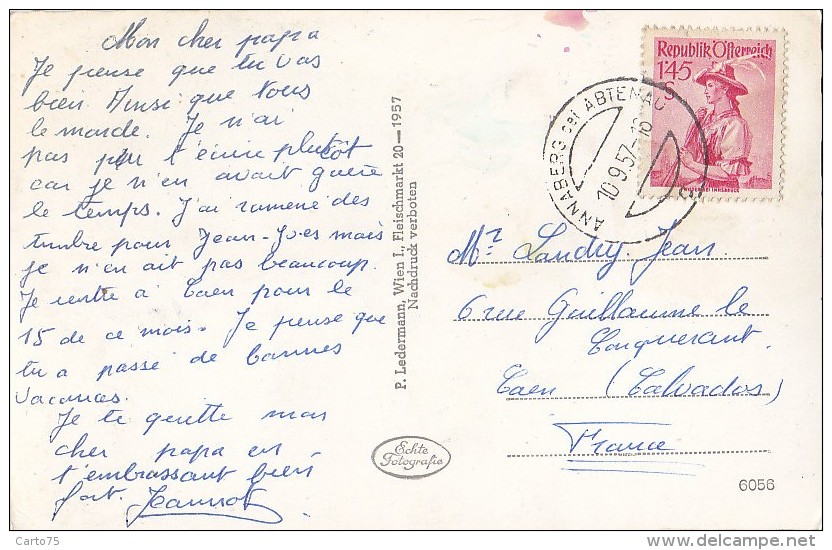 Mon cher papa
Je pense que tu vas
bien. Ainsi que tous
le monde. Je n'ai
pas pu t'écrire plutôt
car je n'en avait guère
le temps. J'ai ramené des
timbre pour Jean-Yves mais
je n'en ait pas beaucoup.
Je rentre à Caen pour le
15 de ce mois. Je pense que
tu a passé de bonnes
vacances.
Je te quitte mon
cher papa en
t'embrassant bien
fort. Jeannot
P. Ledermann, Wien I., Fleischmarkt 20—1957
Nachdruck verboten
Echte
Fotografie
Republik Österreich
1'45
S
ANNABERG bei ABTENAU
10.9.57-18
Mr Landry Jean.
6 rue Guillaume le
Conquerant.
Caen (Calvados)
France
6056
Carto75
www.delcampe.net